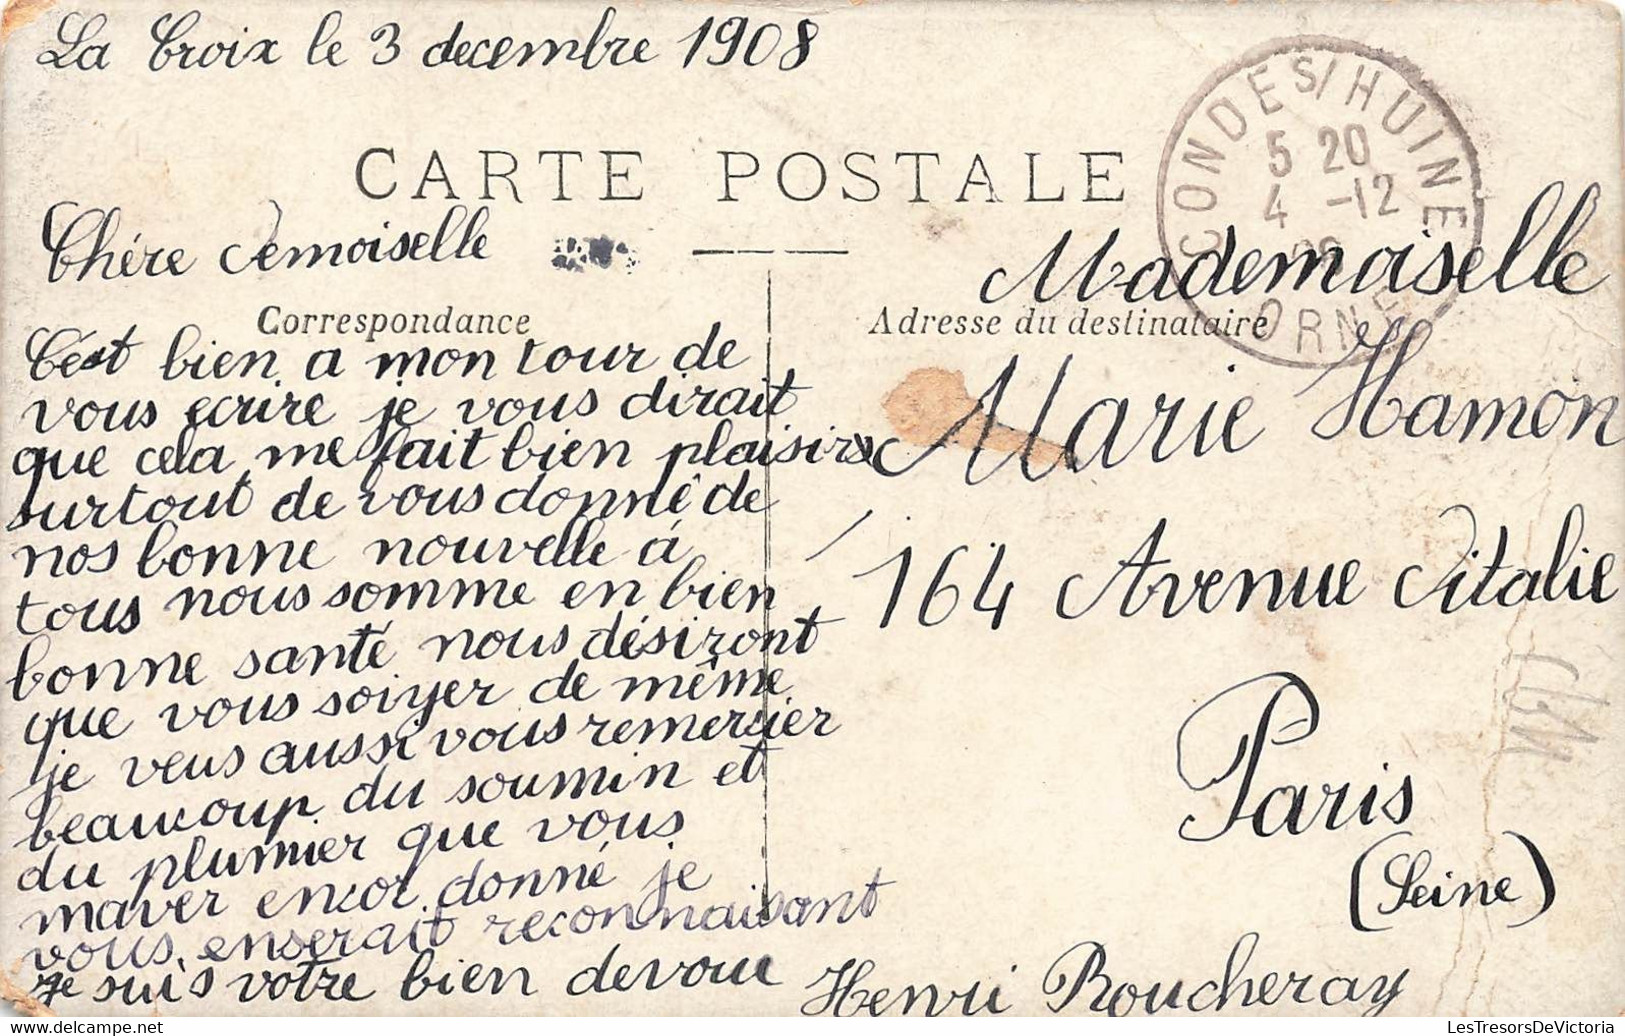 La Croix le 3 decembre 1908
CARTE POSTALE
CONDE S/HUINE
5 20
4 -12
08
ORNE
Chère demoiselle
Correspondance
C'est bien a mon tour de
vous ecrire je vous dirait
que cela me fait bien plaisire
surtout de vous donnê de
nos bonne nouvelle à
tous nous somme en bien
bonne santé nous désiront
que vous soiyer de même
je veus aussi vous remercier
beaucoup du soumin et
du plumier que vous
maver encor donné je
vous enserait reconnaisant
je suis votre bien devoue
Henri Roucheray
Adresse du destinataire
Mademoiselle
Marie Hamon
164 Avenue d'italie
Paris
(Seine)
LesTresorsDeVictoria